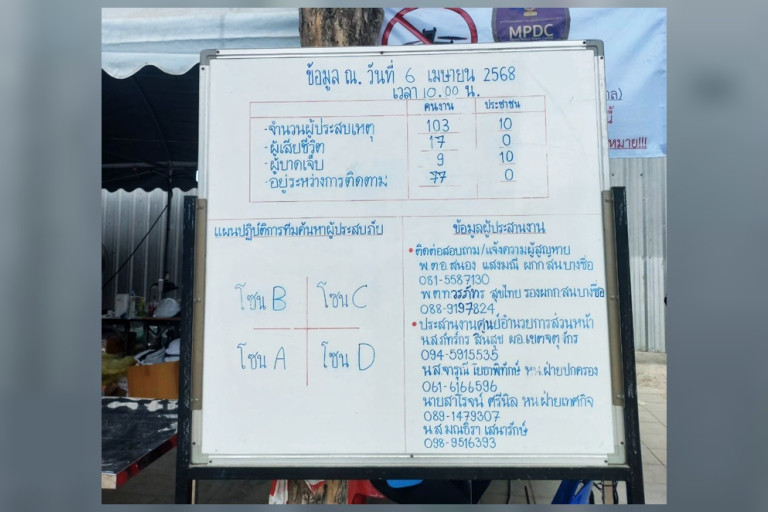 MPDC
ข้อมูล ณ. วันที่ 6 เมษายน 2568
เวลา 10.00 น.
คนงาน ประชาชน
-จำนวนผู้ประสบเหตุ 103 10
-ผู้เสียชีวิต 17 0
-ผู้บาดเจ็บ 9 10
-อยู่ระหว่างการติดตาม 77 0
แผนปฏิบัติการทีมค้นหาผู้ประสบภัย
โซน B โซน C
โซน A โซน D
ข้อมูลผู้ประสานงาน
• ติดต่อสอบถาม/แจ้งความผู้สูญหาย
พ.ต.อ.สนอง แสงมณี ผกก.สน.บางซื่อ
081-5587130
พ.ต.ท.วรภัทร สุขไทย รองผกก.สน.บางซื่อ
088-9197824
• ประสานงานศูนย์อำนวยการส่วนหน้า
น.ส.ภัทร์กร สินสุข ผอ.เขตจตุจักร
094-5915535
น.ส.จารุณี โยธาพิทักษ์ หน.ฝ่ายปกครอง
061-6166596
นายสาโรจน์ ศรีนิล หน.ฝ่ายเทศกิจ
089-1479307
น.ส.มณธิรา เสนารักษ์
098-9516393
หมาย!!!